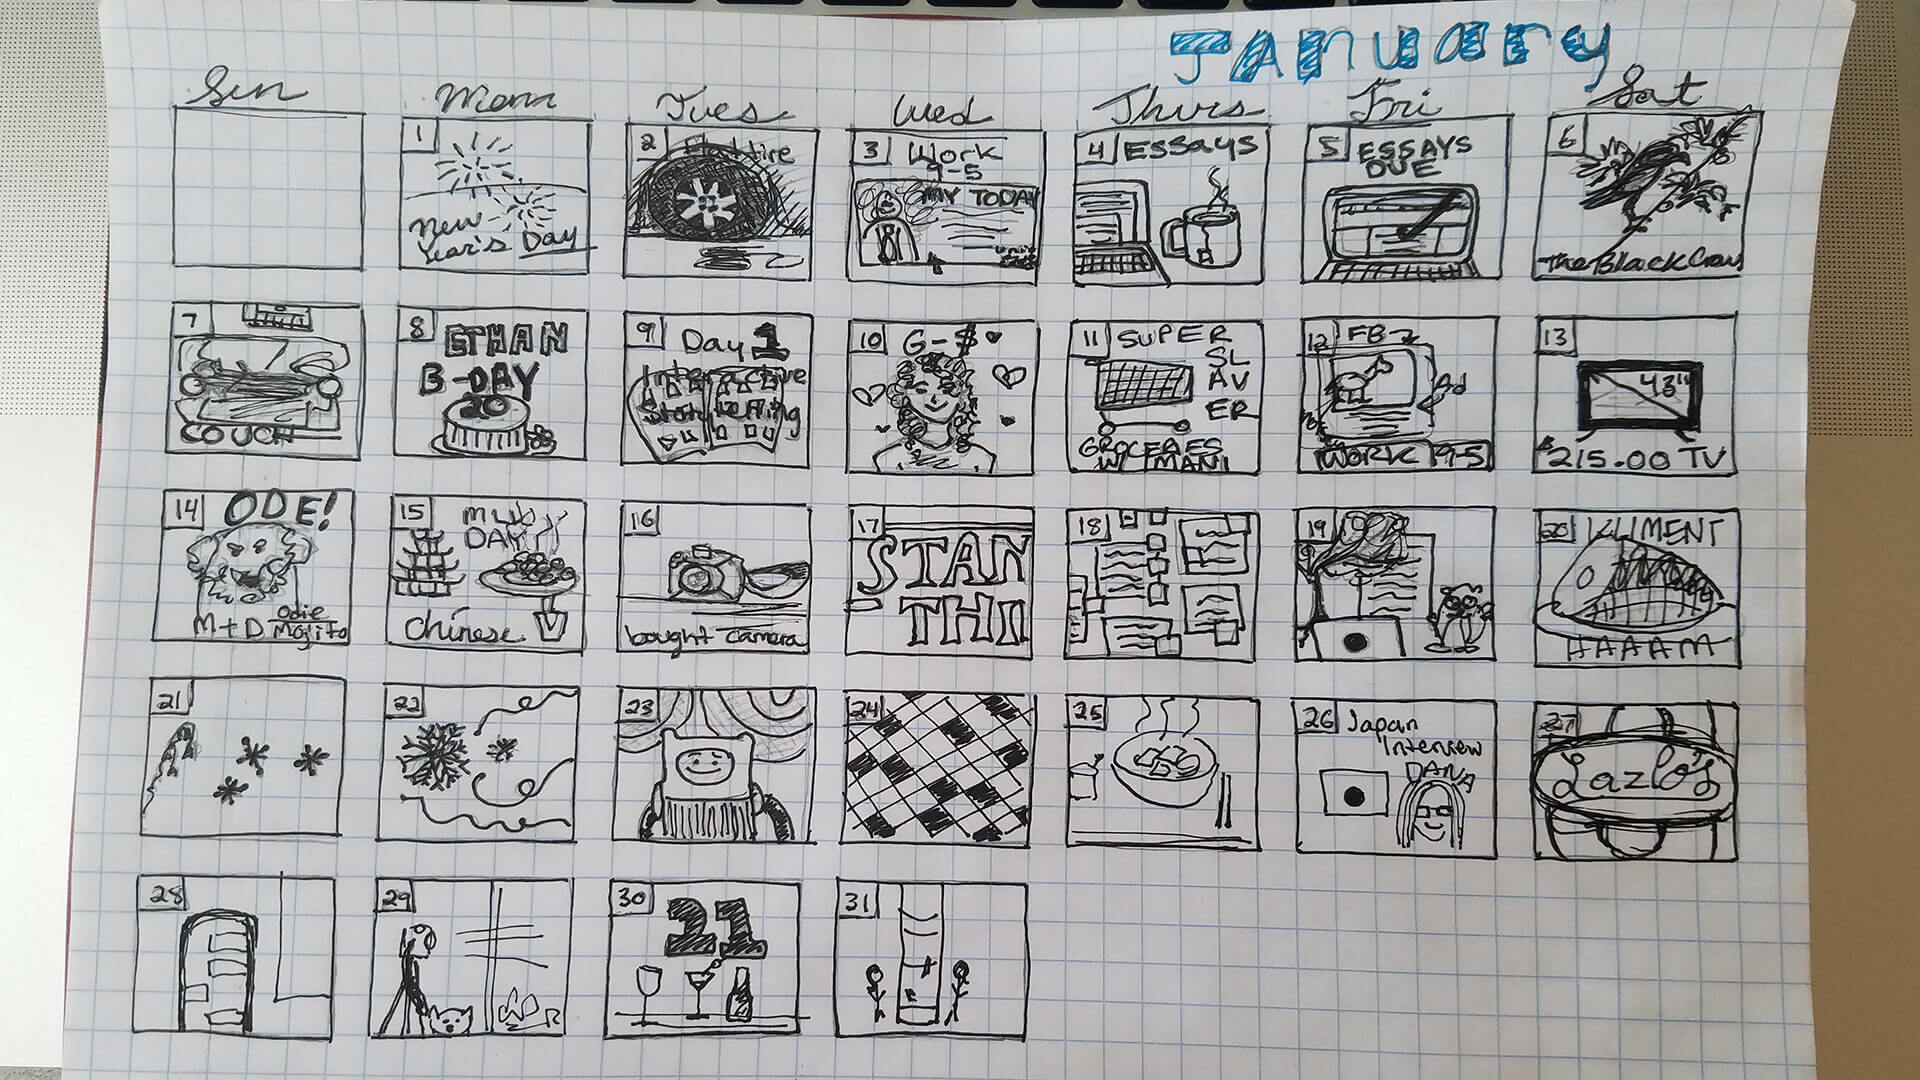 January
Sun Mon Tues Wed Thurs Fri Sat
1
New
Year's Day
2 Flat tire
3 Work
9-5
MY TODAY
4 ESSAYS
5 ESSAYS
DUE
6
The Black Crow
7
COUCH
8 ETHAN
B-DAY
20
9 Day 1
Interactive
Story telling
10 G-$
11 SUPER
SL
AV
ER
GROCERIES
W/ IMANI
12 FB
Ad
WORK 9-5
13
43"
$215.00 TV
14 ODE!
M+D Odie
Mojito
15 MLK
DAY
Chinese
16
bought camera
17
STAN
THI
18
19
20 KLIMENT
HAAAAM
21
22
23
24
25
26 Japan
Interview
DANA
27
Lazlo's
28
29
30
21
31